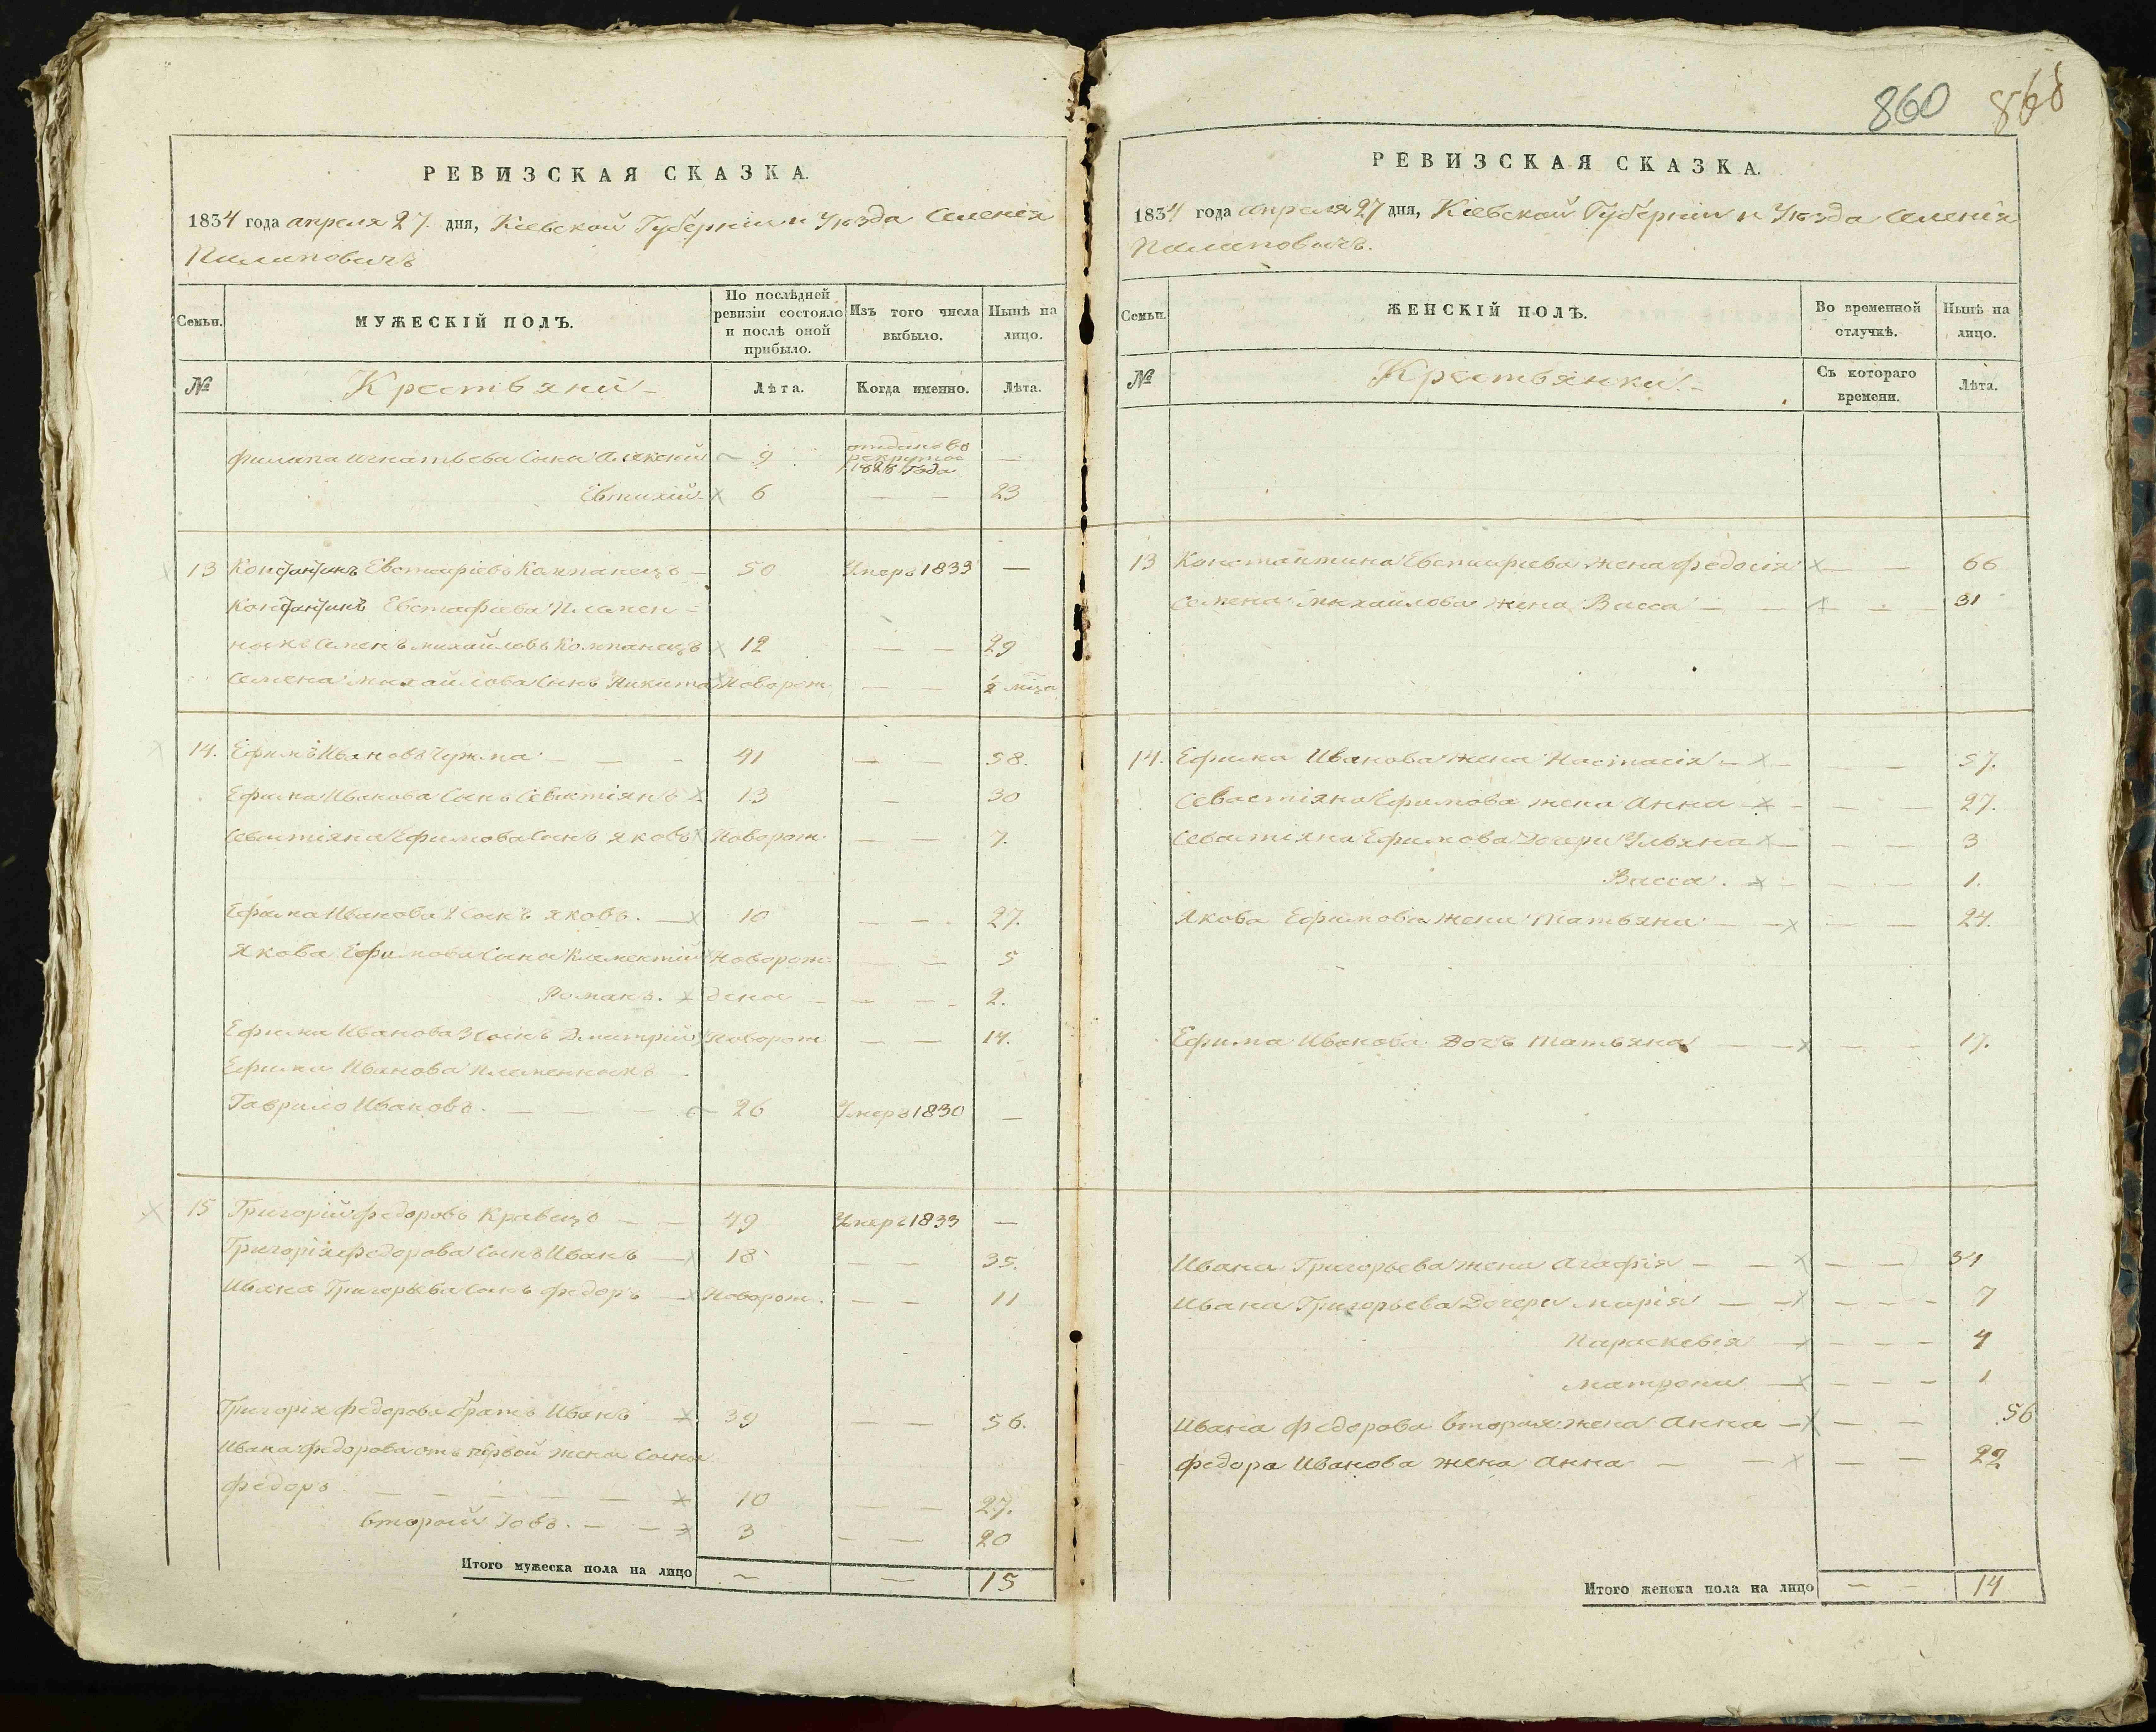 860 868
РЕВИЗСКАЯ СКАЗКА.
1834 года апреля 27. дня, Кіевской Губерніи и Уѣзда Селенія
Пилиповичъ
Семьи.
МУЖЕСКІЙ ПОЛЪ.
По послѣдней ревизіи состояло и послѣ оной прибыло.
Изъ того числа выбыло.
Нынѣ на лицо.
№ Крестьяни Лѣта. Когда именно. Лѣта.
Филипа Игнатьева Сына Алексей 9 отдан во рекруты 1828 года —
Евтихій 6 — — 23
13 Константинъ Евстафіевъ Компанецъ 50 Умеръ 1833 —
Константинъ Евстафіева Племен-
никъ Семенъ Михайловъ Компанецъ 12 — — 29
Семена Михайлова Сынъ Никита Новорож — — 2 мца
14. Ефимъ Ивановъ Чужма — — — 41 — — 58.
Ефима Иванова Сынъ Севастіянъ 13 — 30
Севастіяна Ефимова Сынъ Яковъ Новорож. — — 7.
Ефима Иванова 2 Сынъ Яковъ. — 10 — — 27.
Якова Ефимова Сына Климентій Новорож- — — 5
Романъ. дена — — — 2.
Ефима Иванова 3 Сынъ Дмитрій Новорож — — 14.
Ефима Иванова Племенникъ
Гаврило Ивановъ. — — — 26 Умеръ 1830 —
15 Григорій Федоровъ Кравецъ — — 49 Умеръ 1833 —
Григорія Федорова Сынъ Иванъ — 18 — — 35.
Ивана Григорьева Сынъ Федоръ — Новорож. — — 11
Григорія Федорова Братъ Иванъ 39 — — 56.
Ивана Федорова отъ первой жены Сына
Федоръ — — — — — — 10 — — 27.
второй Іовъ. — — 3 — — 20
Итого мужеска пола на лицо — — 15
РЕВИЗСКАЯ СКАЗКА.
1834 года апреля 27 дня, Кіевской Губерніи и Уѣзда Селенія
Пилиповичъ.
Семьи.
ЖЕНСКІЙ ПОЛЪ.
Во временной отлучкѣ.
Нынѣ на лицо.
№ Крестьянки. Съ котораго времени. Лѣта.
13 Константина Евстафіева жена Федосія — — 66
Семена Михайлова жена Васса — — — 31
14. Ефима Иванова жена Настасія — — — 57.
Севастіяна Ефимова жена Анна — — — 27.
Севастіяна Ефимова Дочери Ульяна — — — 3
Васса. — — — 1.
Якова Ефимова жена Татьяна — — — — 24.
Ефима Иванова Дочь Татьяна — — — — 17.
Ивана Григорьева жена Агафія — — — — 34
Ивана Григорьева Дочери Марія — — — — — 7
Параскевія — — — — 4
Матрона — — — — 1
Ивана Федорова вторая жена Анна — — — 56
Федора Иванова жена Анна — — — — 22
Итого женска пола на лицо — — 14